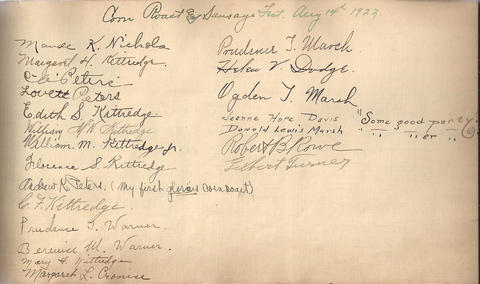 Corn Roast & Sausage Fest. Aug 14th 1923.
Maude K. Nichols
Margaret H. Kittredge.
C A Peters
Lovett Peters
Edith S. Kittredge
William Kittredge
William. M. Kittredge Jr.
Florence S. Kittredge
Andrew N. Peters. (My first glorious corn roast)
C. F. Kittredge.
Prudence T. Warner
Berenice M. Warner.
Mary H. Kittredge
Margaret L. Cronise
Prudence T. Marsh.
Helen V Dodge.
Ogden T. Marsh
Jeanne Hope Davis "Some good party"
Donald Lewis Marsh " " or "
Robert B Rowe
Gilbert Turner